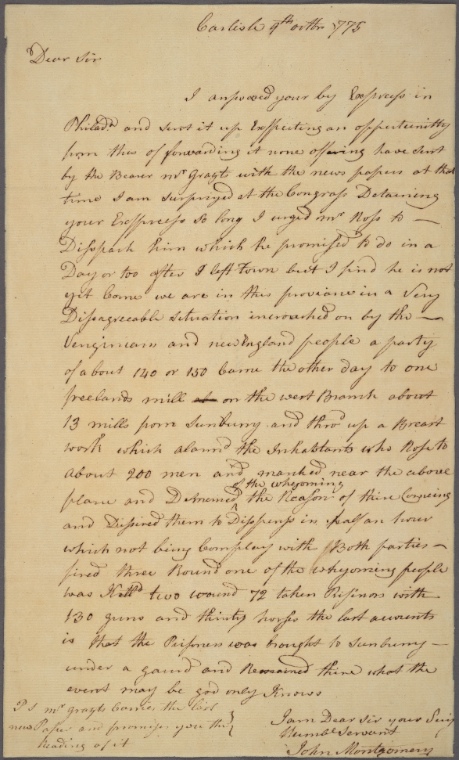 Carlisle 9th octbr 1775
Dear Sir
I answored your by Exspress in
Philada and sent it up Exspecting an oppertunitty
from thes of forwarding it none offering have sent
by the Bearer mr Grayt with the news papers at that
time I am surprysed at the Congrass Detaining
your Exspress So long I urged mr Ross to
Disspach him which he promised to do in a
Day or too after I left Town but I find he is not
yet Come we are in this proviance in a Very
Dissagreeable situation incroached on by the
Verginieans and newEngland people a party
of about 140 or 150 Came the other day to one
freelands mill on the west Branch about
13 mills from Sunburry and throd up a Breast
work which alarmd the Inhabitants who Rose to
about 200 men and marched near the above
of the whyoming
place and Demened the Reason of thire Comeing
and Dissired them to Disspress in half an hour
which not being Complayd with Both parties
fired three Round one of the whyoming people
was Killd two wound 72 taken Prisinors with
130 guns and thirty horses the last accounts
is that the Prissners was brought to Sunburry
under a gaurd and Remained there what the
event may be god only Knows
P S mr grayt Carries the last
news Paper and promises you the
Reading of it
I am Dear Sir your Very
Humble Servant
John Montgomery